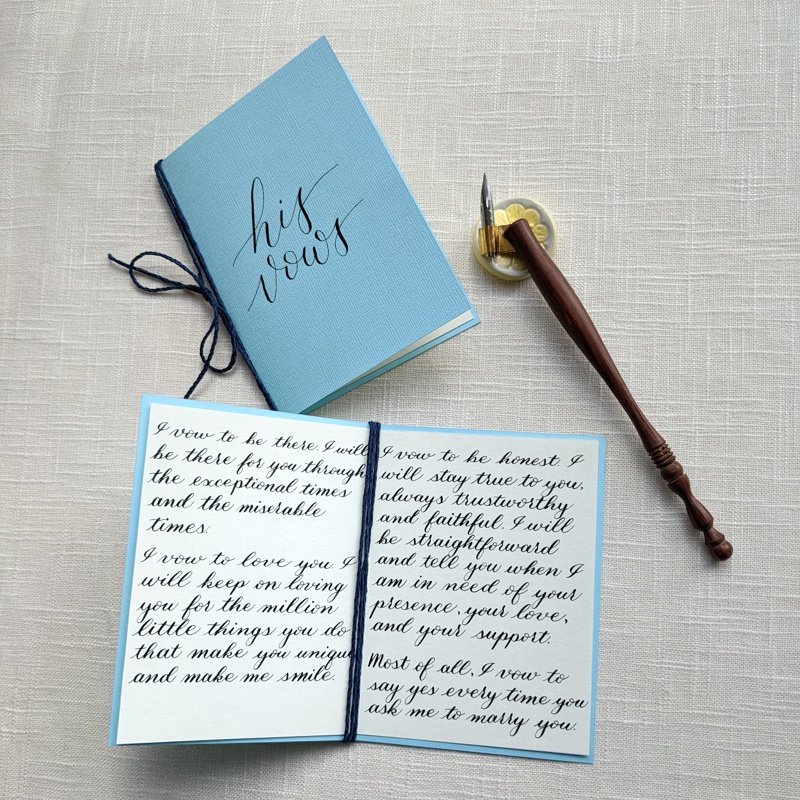 his
vows
I vow to be there. I will
be there for you through
the exceptional times
and the miserable
times.
I vow to love you. I
will keep on loving
you for the million
little things you do
that make you unique
and make me smile.
I vow to be honest. I
will stay true to you,
always trustworthy
and faithful. I will
be straightforward
and tell you when I
am in need of your
presence, your love,
and your support.
Most of all, I vow to
say yes every time you
ask me to marry you.